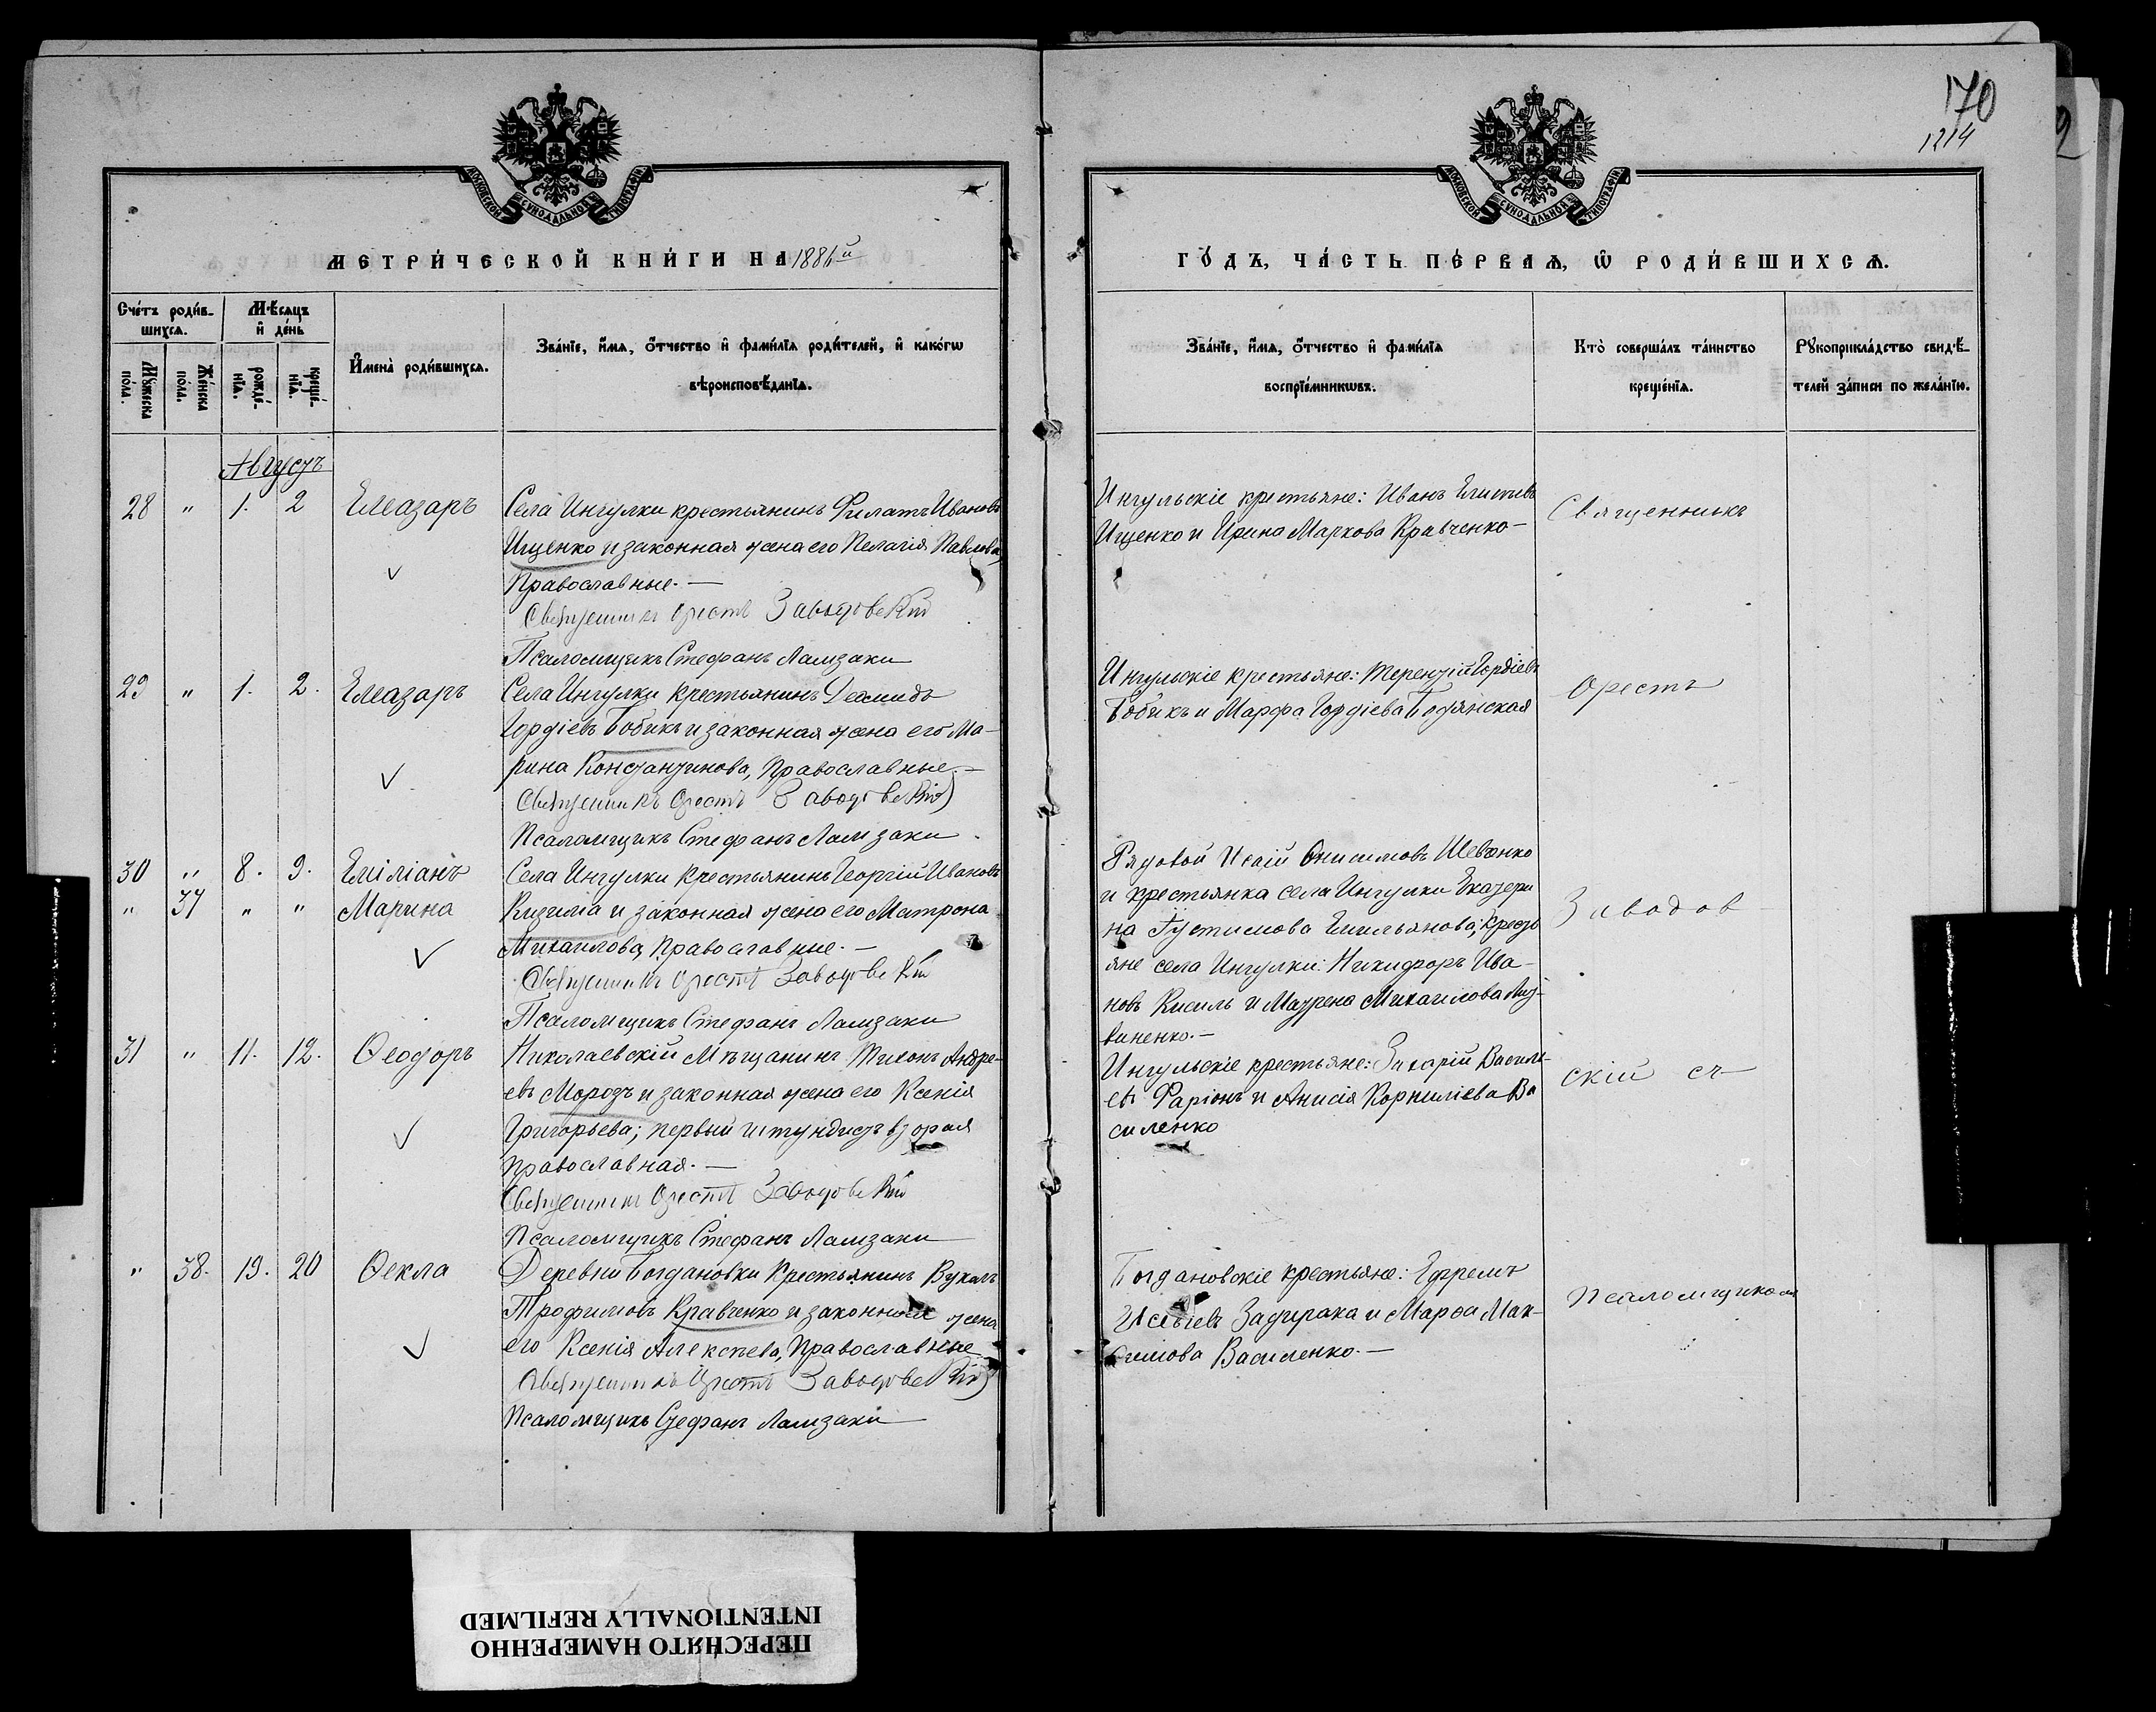 170
1214
МОСКОВСКОЙ СѴНОДАЛЬНОЙ ТИПОГРАФІИ
МОСКОВСКОЙ СѴНОДАЛЬНОЙ ТИПОГРАФІИ
МЕТРИ́ЧЕСКОЙ КНИ́ГИ НА 1886й
ГО́ДЪ, ЧА́СТЬ ПЕ́РВАѦ, Ѡ҆ РОДИ́ВШИХСѦ.
Счетъ роди́вшихсѧ.
Мѣсѧцъ и҆ де́нь
Мꙋ́жеска по́ла.
Же́нска по́ла.
рожде́нїѧ.
креще́нїѧ.
И҆мена̀ роди́вшихсѧ.
Зва́нїе, и҆́мѧ, ѻ҆́тчество и҆ фами́лїѧ роди́телей, и҆ како́гѡ вѣроисповѣ́данїѧ.
Зва́нїе, и҆́мѧ, ѻ҆́тчество и҆ фами́лїѧ воспрїе́мникѡвъ.
Кто̀ соверша́лъ та́инство креще́нїѧ.
Рꙋкоприкла́дство свидѣ́телей за́писи по жела́нїю.
Августъ
28 " 1. 2 Елеазаръ
Села Ингулки крестьянинъ Филатъ Ивановъ
Ищенко и законная жена его Пелагія Павлова,
Православные. —
Священникъ Орестъ Заводовскій
Псаломщикъ Стефанъ Ламзаки
Ингульскіе крестьяне: Иванъ
Ищенко и Ирина Маркова Кравченко —
Священникъ
29 " 1. 2. Елеазаръ
Села Ингулки крестьянинъ Деомидъ
Гордіевъ Бобикъ и законная жена его Ма-
рина Константинова, Православные. —
Священникъ Орестъ Заводовскій
Псаломщикъ Стефанъ Ламзаки
Ингульскіе крестьяне: Терентій Гордіевъ
Бобикъ и Марфа Гордіева
Орестъ
30 " 8. 9. Еміліанъ
" 37 " " Марина
Села Ингулки крестьянинъ Георгій Ивановъ
Кизима и законная жена его Матрона
Михаилова, Православные. —
Священникъ Орестъ Заводовскій
Псаломщикъ Стефанъ Ламзаки
Рядовой Онисимовъ Шевченко
и крестьянка села Ингулки Екатери
на Густимова Емильянова; Кресть
яне села Ингулки: Никифоръ Ива-
новъ Кисиль и Михаилова Лит-
виненко. —
Заводов
31 " 11. 12. Ѳеодоръ
Николаевскій Мѣщанинъ Тихонъ Андре-
евъ Морозъ и законная жена его Ксенія
Григорьева; первый штундистъ вторая
православная. —
Священникъ Орестъ Заводовскій
Псаломщикъ Стефанъ Ламзаки
Ингульскіе крестьяне: Захарій Василь-
евъ Фаріонъ и Анисія Корниліева Ва
силенко
скій съ
" 38. 19. 20 Ѳекла
Деревни Богдановки Крестьянинъ Вуколъ
Трофимовъ Кравченко и законная жена
его Ксенія Алексѣева, Православные
Священникъ Орестъ Заводовскій
Псаломщикъ Стефанъ Ламзаки
Богдановскіе крестьяне: Ефремъ
Задирака и Марѳа Мак-
симова Василенко. —
Псаломщикомъ
ПЕРЕСНЯТО НАМЕРЕННО
INTENTIONALLY REFILMED